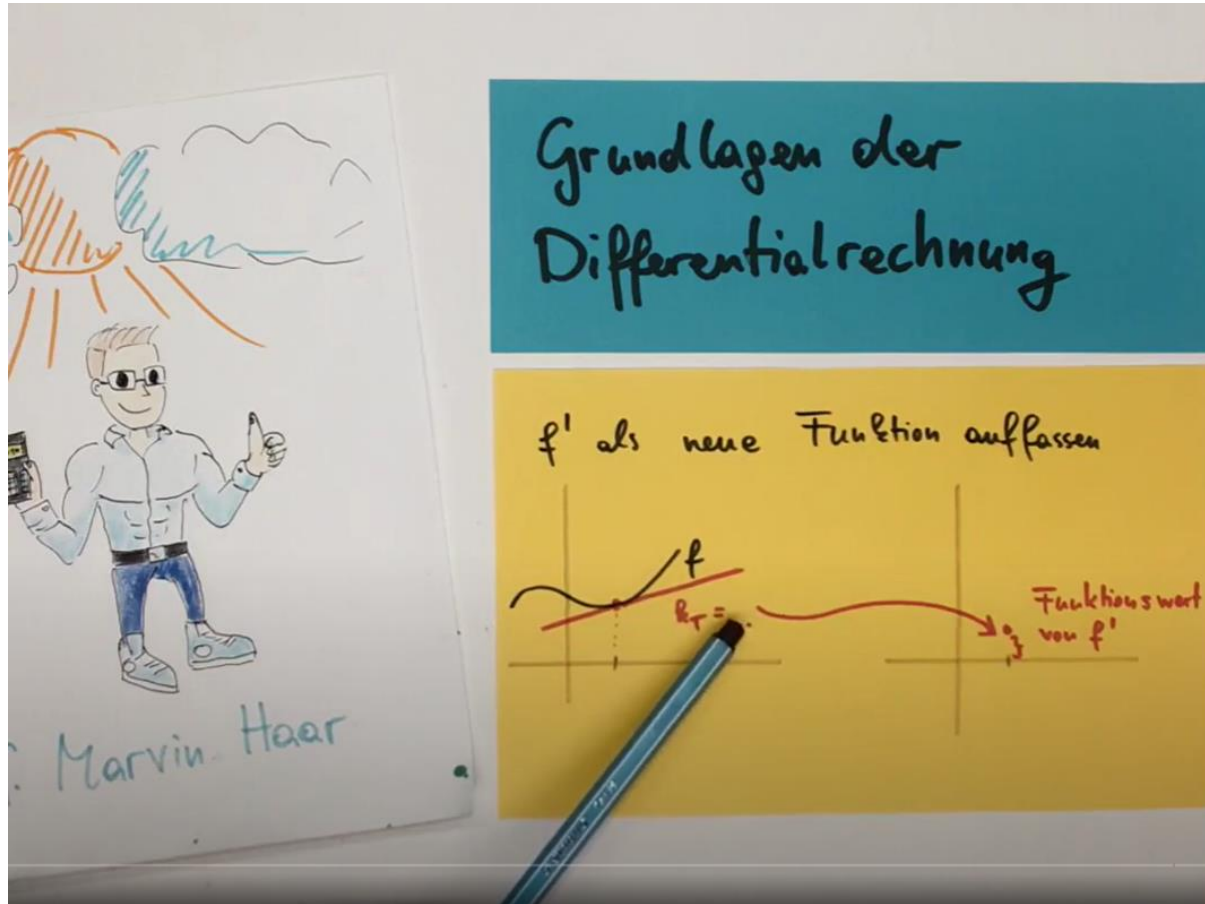 Grundlagen der
Differentialrechnung
f' als neue Funktion auffassen
f
k_T = ...
Funktionswert
von f'
Marvin Haar